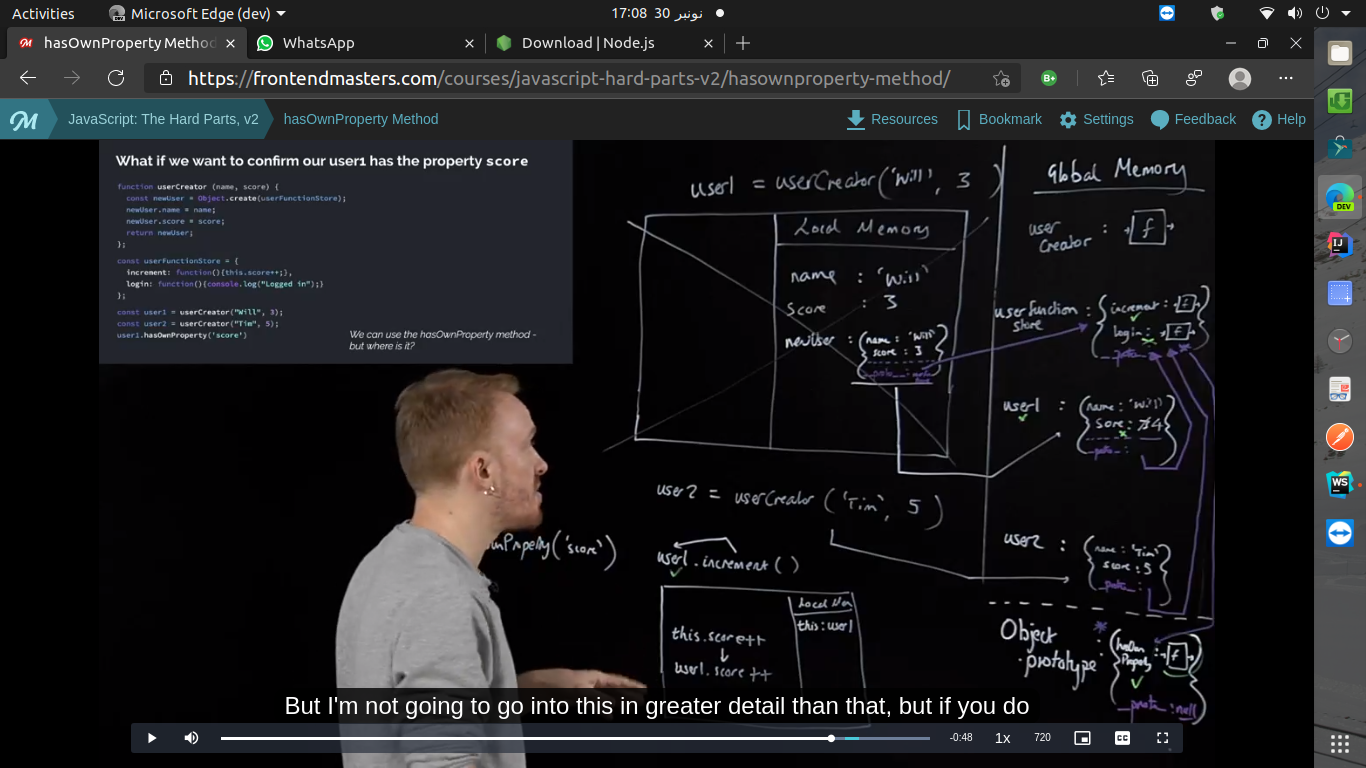 Activities
Microsoft Edge (dev)
17:08 30 نونبر
hasOwnProperty Method
WhatsApp
Download | Node.js
https://frontendmasters.com/courses/javascript-hard-parts-v2/hasownproperty-method/
JavaScript: The Hard Parts, v2
hasOwnProperty Method
Resources
Bookmark
Settings
Feedback
Help
What if we want to confirm our user1 has the property score
function userCreator (name, score) {
const newUser = Object.create(userFunctionStore);
newUser.name = name;
newUser.score = score;
return newUser;
};
const userFunctionStore = {
increment: function(){this.score++;},
login: function(){console.log("Logged in");}
};
const user1 = userCreator("Will", 3);
const user2 = userCreator("Tim", 5);
user1.hasOwnProperty('score')
We can use the hasOwnProperty method -
but where is it?
user1 = userCreator('Will', 3)
Local Memory
name : 'Will'
score : 3
newUser : {name : 'Will'
score : 3
__proto__:
}
Global Memory
user Creator : f
userfunction store : {increment : f
login : f
__proto__
}
user1 : {name : 'Will'
Score : 4
__proto__:
}
user2 = userCreator ('Tim', 5)
user2 : {name : 'Tim'
score : 5
__proto__:
}
wnProperty('score')
user1.increment()
Local Mem
this : user1
this.score++
user1.score++
Object prototype : {hasOwn Property : f
__proto__ : null
}
But I'm not going to go into this in greater detail than that, but if you do
-0:48
1x
720
CC
DEV
IJ
WS
B+